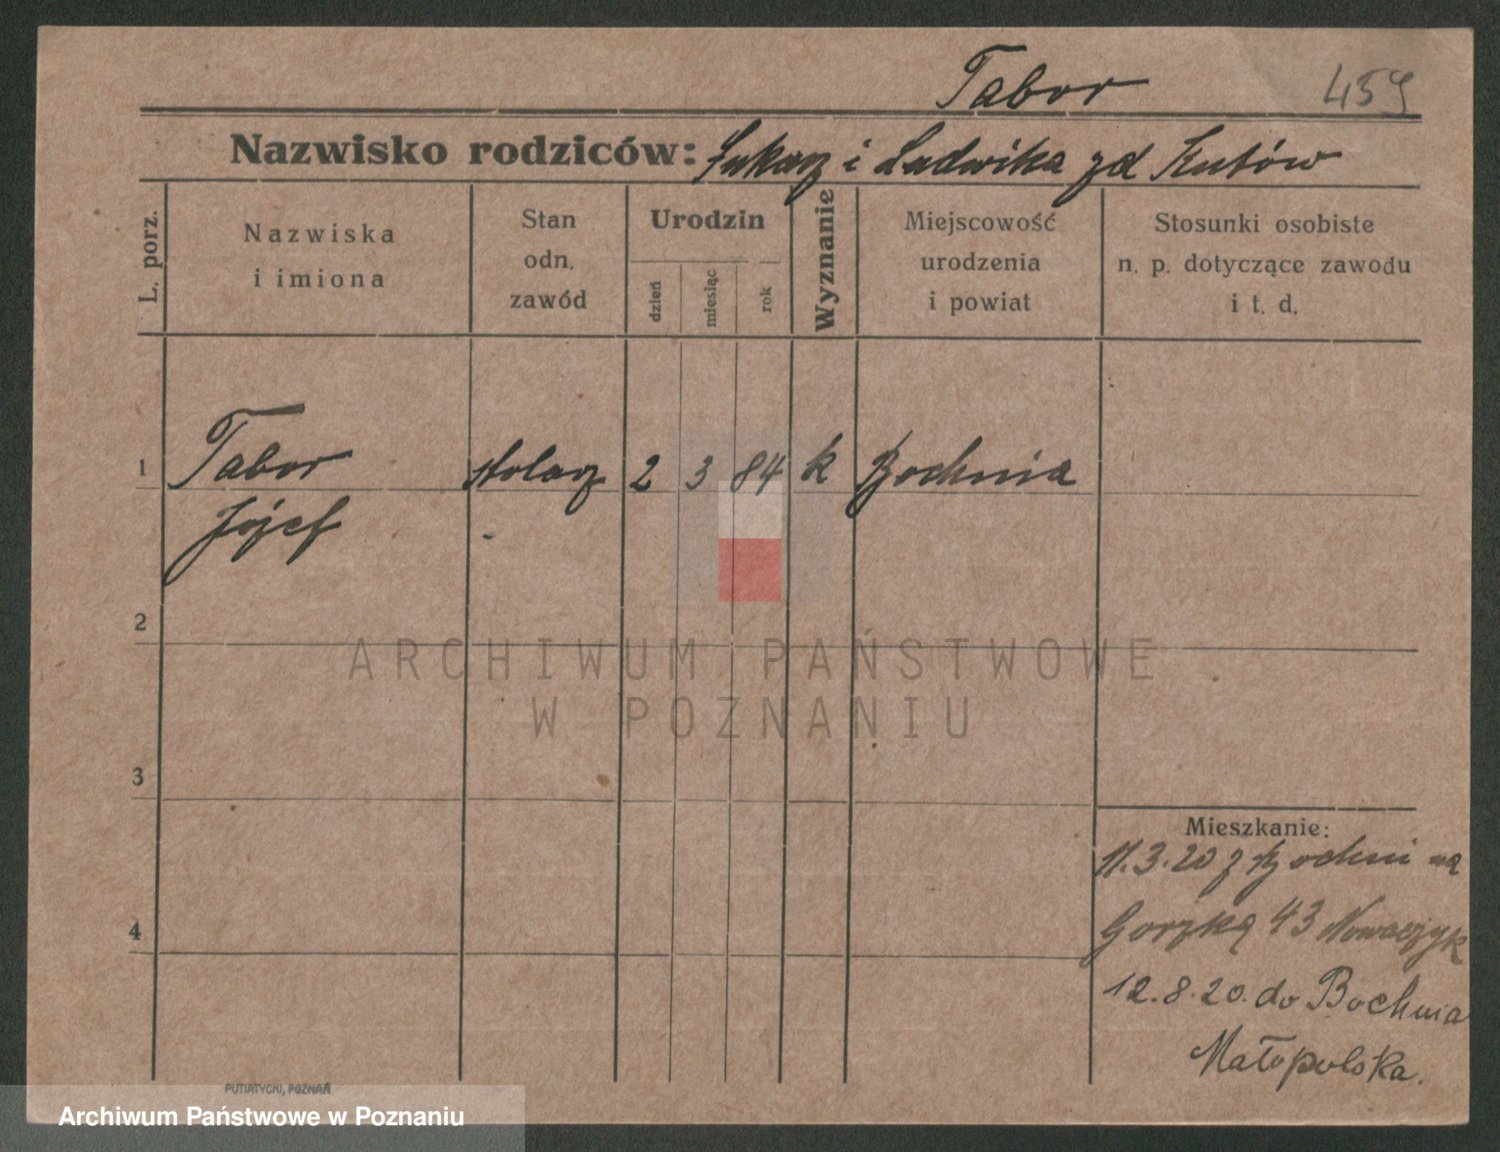 Tabor 459
Nazwisko rodziców: Łukasz i Ludwika zd Kutów
L. porz.
Nazwiska
i imiona
Stan
odn.
zawód
Urodzin
dzień
miesiąc
rok
Wyznanie
Miejscowość
urodzenia
i powiat
Stosunki osobiste
n. p. dotyczące zawodu
i t. d.
1 Tabor stolarz 2 3 84 k Bochnia
Józef
2
ARCHIWUM PAŃSTWOWE
W POZNANIU
3
Mieszkanie:
11.3.20 z Bochni na
4 Gorzką 43 Nowaczyk
12.8.20. do Bochnia
Małopolska.
PUTIATYCKI, POZNAŃ
Archiwum Państwowe w Poznaniu